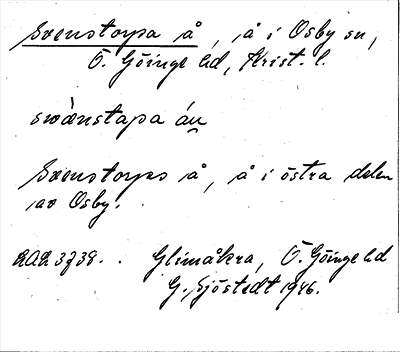 Svenstorpa å, å i Osby sn,
Ö. Göinge hd, Krist. l.
swänstapa áu
Svenstorps å, å i östra delen
av Osby.
Glimåkra, Ö. Göinge hd
G. Sjöstedt 1946.